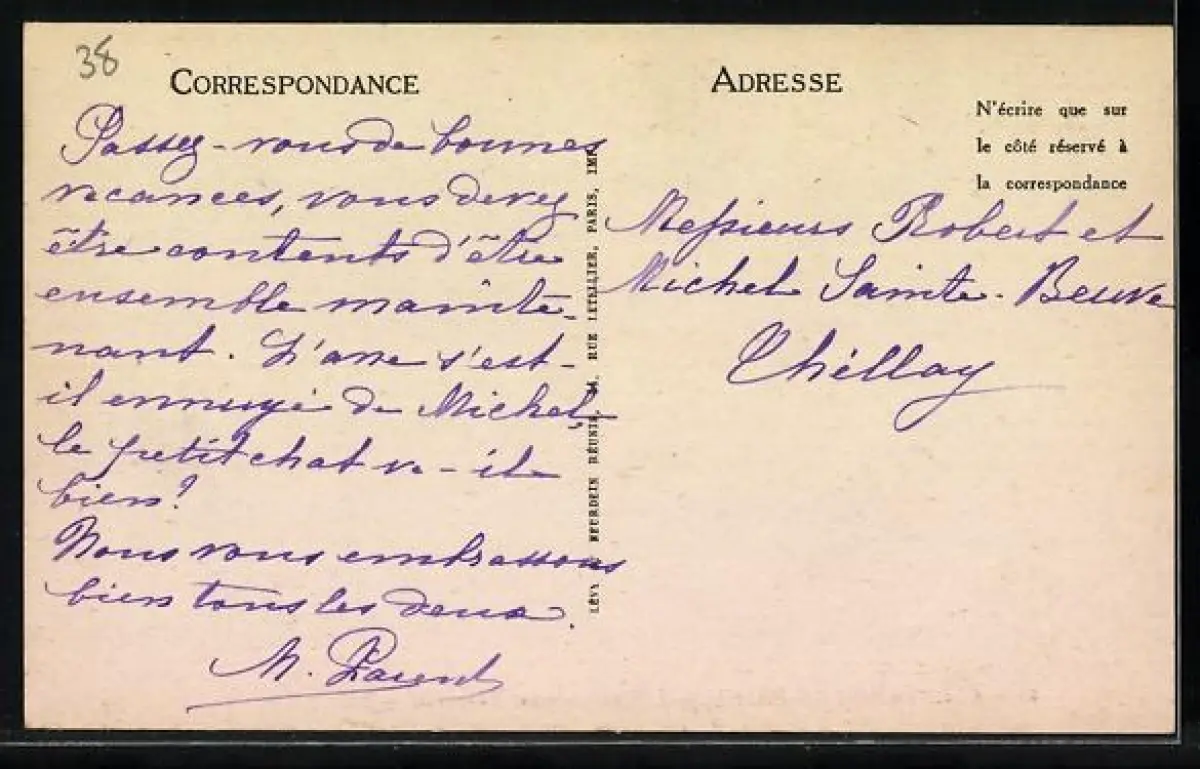 38
CORRESPONDANCE
Passez-vous de bonnes
vacances, vous devez
être contents d'être
ensemble mainte-
nant. L'âne s'est-
il ennuyé de Michel,
le petit chat va-il
bien?
Nous vous embrassons
bien tous les deux.
M. Parent
LÉVY NEURDEIN RÉUNIS, 44, RUE LETELLIER, PARIS, IMP
ADRESSE
N'écrire que sur
le côté réservé à
la correspondance
Messieurs Robert et
Michel Sainte-Beuve
Thélloy